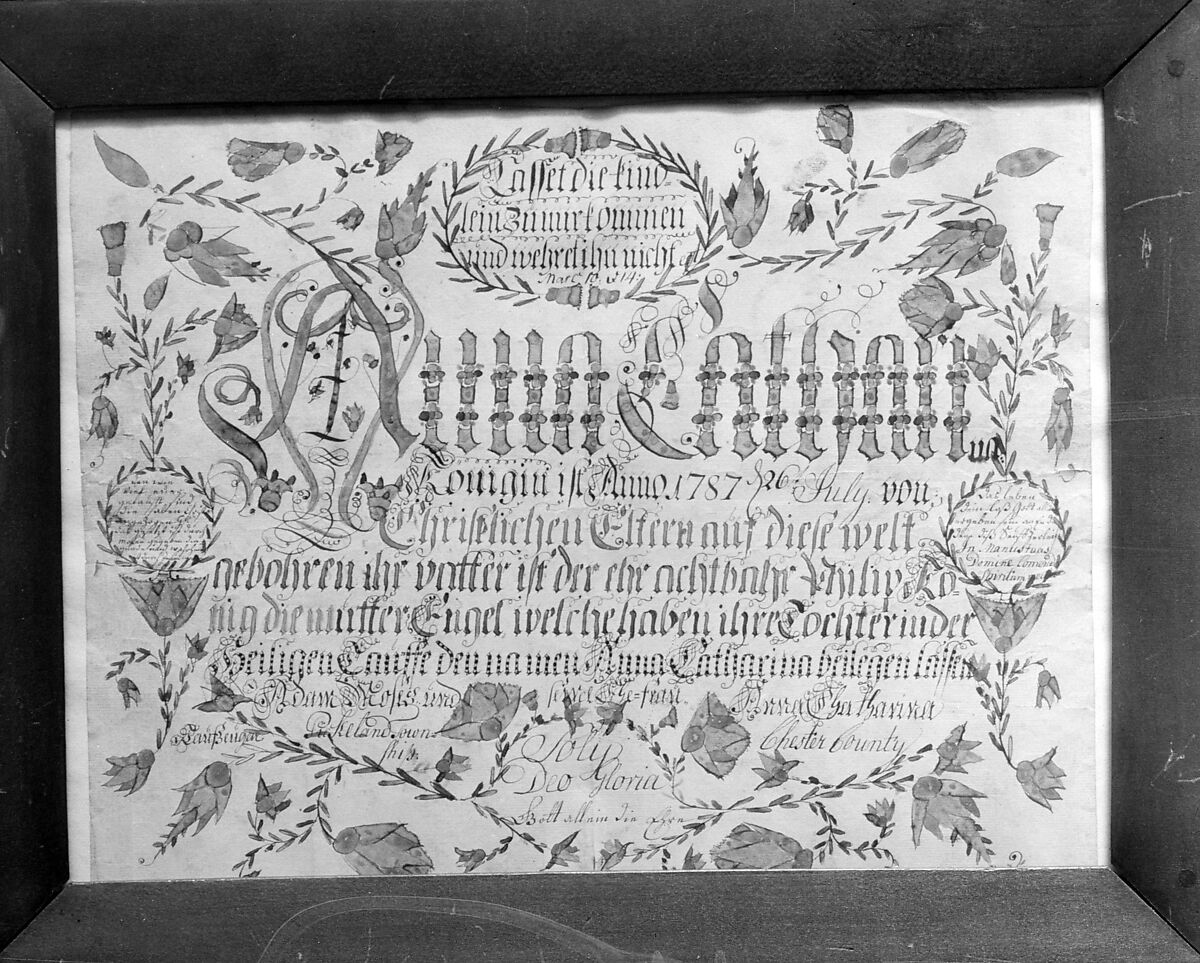 Lasset die kind=
lein zu mir kommen
und wehret ihn nicht
Marc 10. v 14.
Anna Catharina
Königin ist Anno 1787 d 26. July von
Christlichen Eltern auf diese welt
gebohren ihr vatter ist der ehr achtbahr Philip Kö-
nig die mutter Engel welche haben ihre Tochter in der
Heiligen Tauffe den namen Anna Catharina beilegen lassen
Adam Moses und seine Ehe-frau Anna Chatharina
Taufzeugen
township
Chester County
Soly
Deo Gloria
Gott allein die Ehre
Das leben
In Manus tuas
Domine